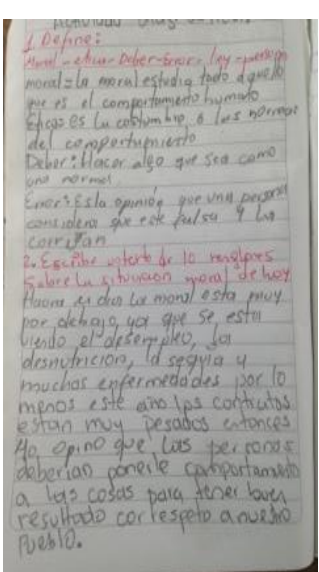 1 Define:
Moral - etica - Deber - Error - ley - person
moral = La moral estudia todo aquello
que es el comportamiento humano
Etica: es la costumbre o las normas
del comportamiento
Deber: Hacer algo que sea como
una norma
Error: Es la opinión que una persona
considera que este falsa y la
corrijan
2. Escribe de 10 renglones
sobre la situacion moral de hoy
Haora en dia La moral esta muy
por debajo, ya que se esta
viendo el desempleo, la
desnutricion, la sequia y
muchas enfermedades por lo
menos este año los contratos
estan muy pesados entonces
Yo opino que las personas
deberian ponerle comportamiento
a las cosas para tener buen
resultado con respeto a nuestro
Pueblo.